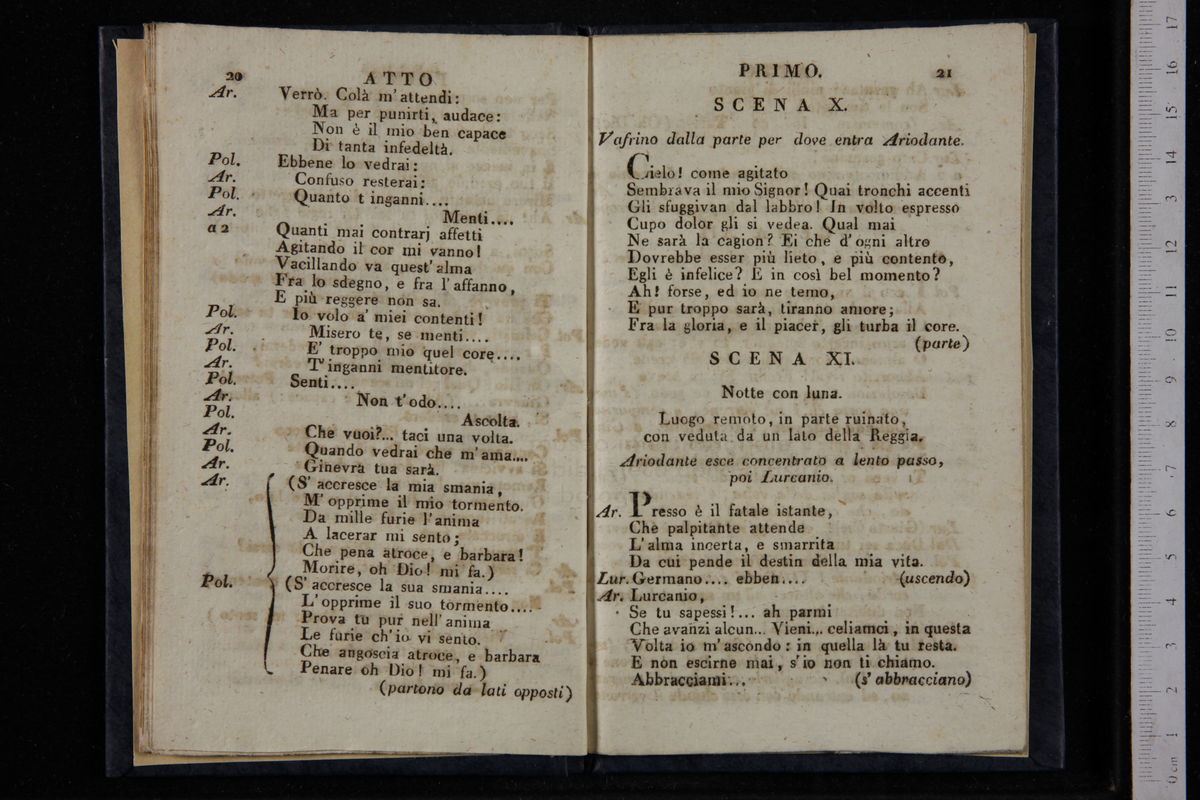 20 ATTO
Ar. Verrò. Colà m'attendi:
Ma per punirti, audace:
Non è il mio ben capace
Di tanta infedeltà.
Pol. Ebbene lo vedrai:
Ar. Confuso resterai:
Pol. Quanto t inganni....
Ar. Menti....
a 2 Quanti mai contrarj affetti
Agitando il cor mi vanno!
Vacillando va quest'alma
Fra lo sdegno, e fra l'affanno,
E più reggere non sa.
Pol. Io volo a' miei contenti!
Ar. Misero te, se menti....
Pol. E' troppo mio quel core....
Ar. T'inganni mentitore.
Pol. Senti....
Ar. Non t'odo....
Pol. Ascolta.
Ar. Che vuoi?... taci una volta.
Pol. Quando vedrai che m'ama....
Ar. Ginevra tua sarà.
Ar. (S'accresce la mia smania,
M'opprime il mio tormento.
Da mille furie l'anima
A lacerar mi sento;
Che pena atroce, e barbara!
Morire, oh Dio! mi fa.)
Pol. (S'accresce la sua smania....
L'opprime il suo tormento....
Prova tu pur nell'anima
Le furie ch'io vi sento.
Che angoscia atroce, e barbara
Penare oh Dio! mi fa.)
(partono da lati opposti)
PRIMO. 21
SCENA X.
Vafrino dalla parte per dove entra Ariodante.
Cielo! come agitato
Sembrava il mio Signor! Quai tronchi accenti
Gli sfuggivan dal labbro! In volto espresso
Cupo dolor gli si vedea. Qual mai
Ne sarà la cagion? Ei che d'ogni altro
Dovrebbe esser più lieto, e più contento,
Egli è infelice? E in così bel momento?
Ah! forse, ed io ne temo,
E pur troppo sarà, tiranno amore;
Fra la gloria, e il piacer, gli turba il core.
(parte)
SCENA XI.
Notte con luna.
Luogo remoto, in parte ruinato,
con veduta da un lato della Reggia.
Ariodante esce concentrato a lento passo,
poi Lurcanio.
Ar. Presso è il fatale istante,
Che palpitante attende
L'alma incerta, e smarrita
Da cui pende il destin della mia vita.
Lur. Germano.... ebben.... (uscendo)
Ar. Lurcanio,
Se tu sapessi!... ah parmi
Che avanzi alcun... Vieni... celiamci, in questa
Volta io m'ascondo: in quella là tu resta.
E non escirne mai, s'io non ti chiamo.
Abbracciami... (s'abbracciano)
0 cm 1 2 3 4 5 6 7 8 9 10 11 12 13 14 15 16 17